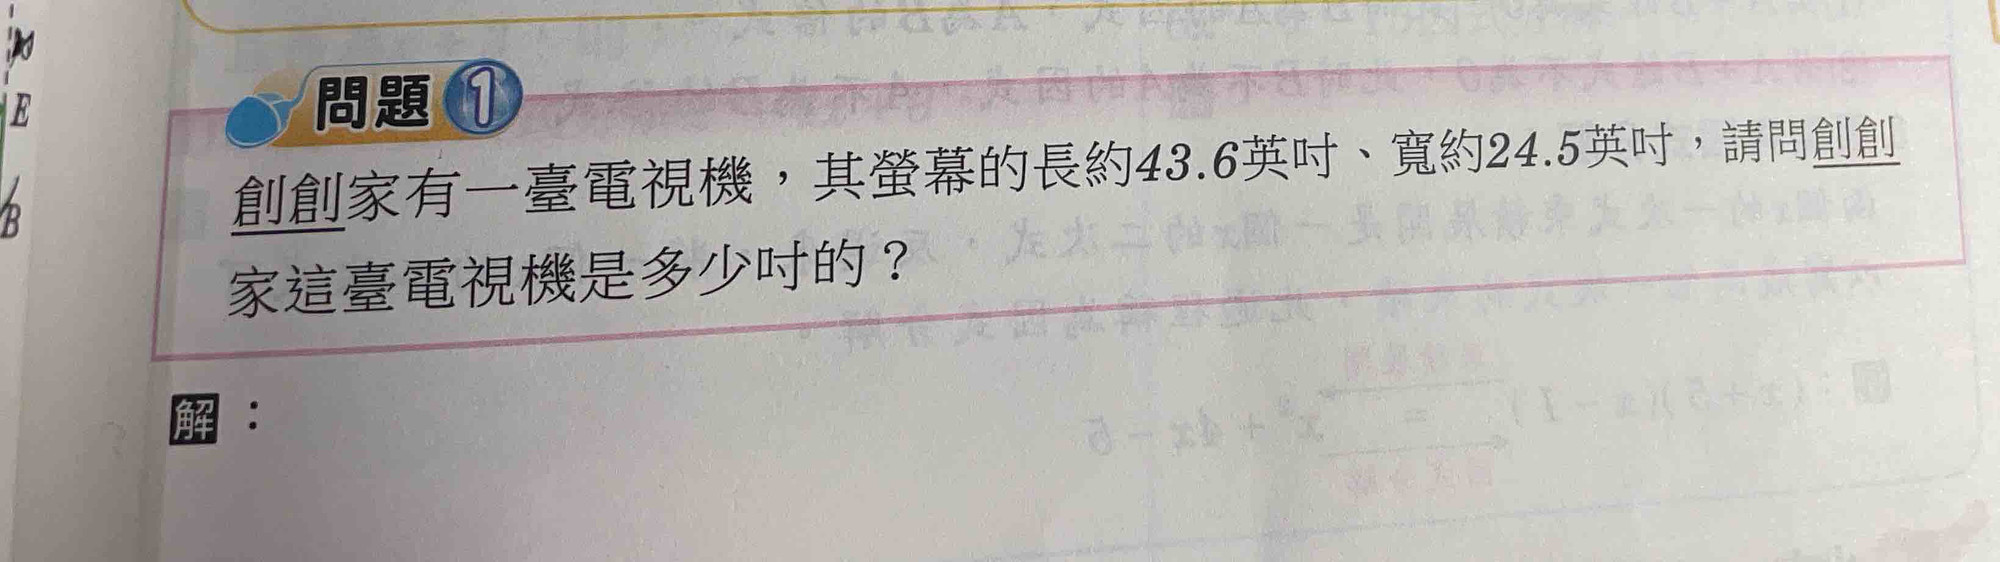 E
B
問題1
創創家有一臺電視機，其螢幕的長約43.6英吋、寬約24.5英吋，請問創創
家這臺電視機是多少吋的？
解：